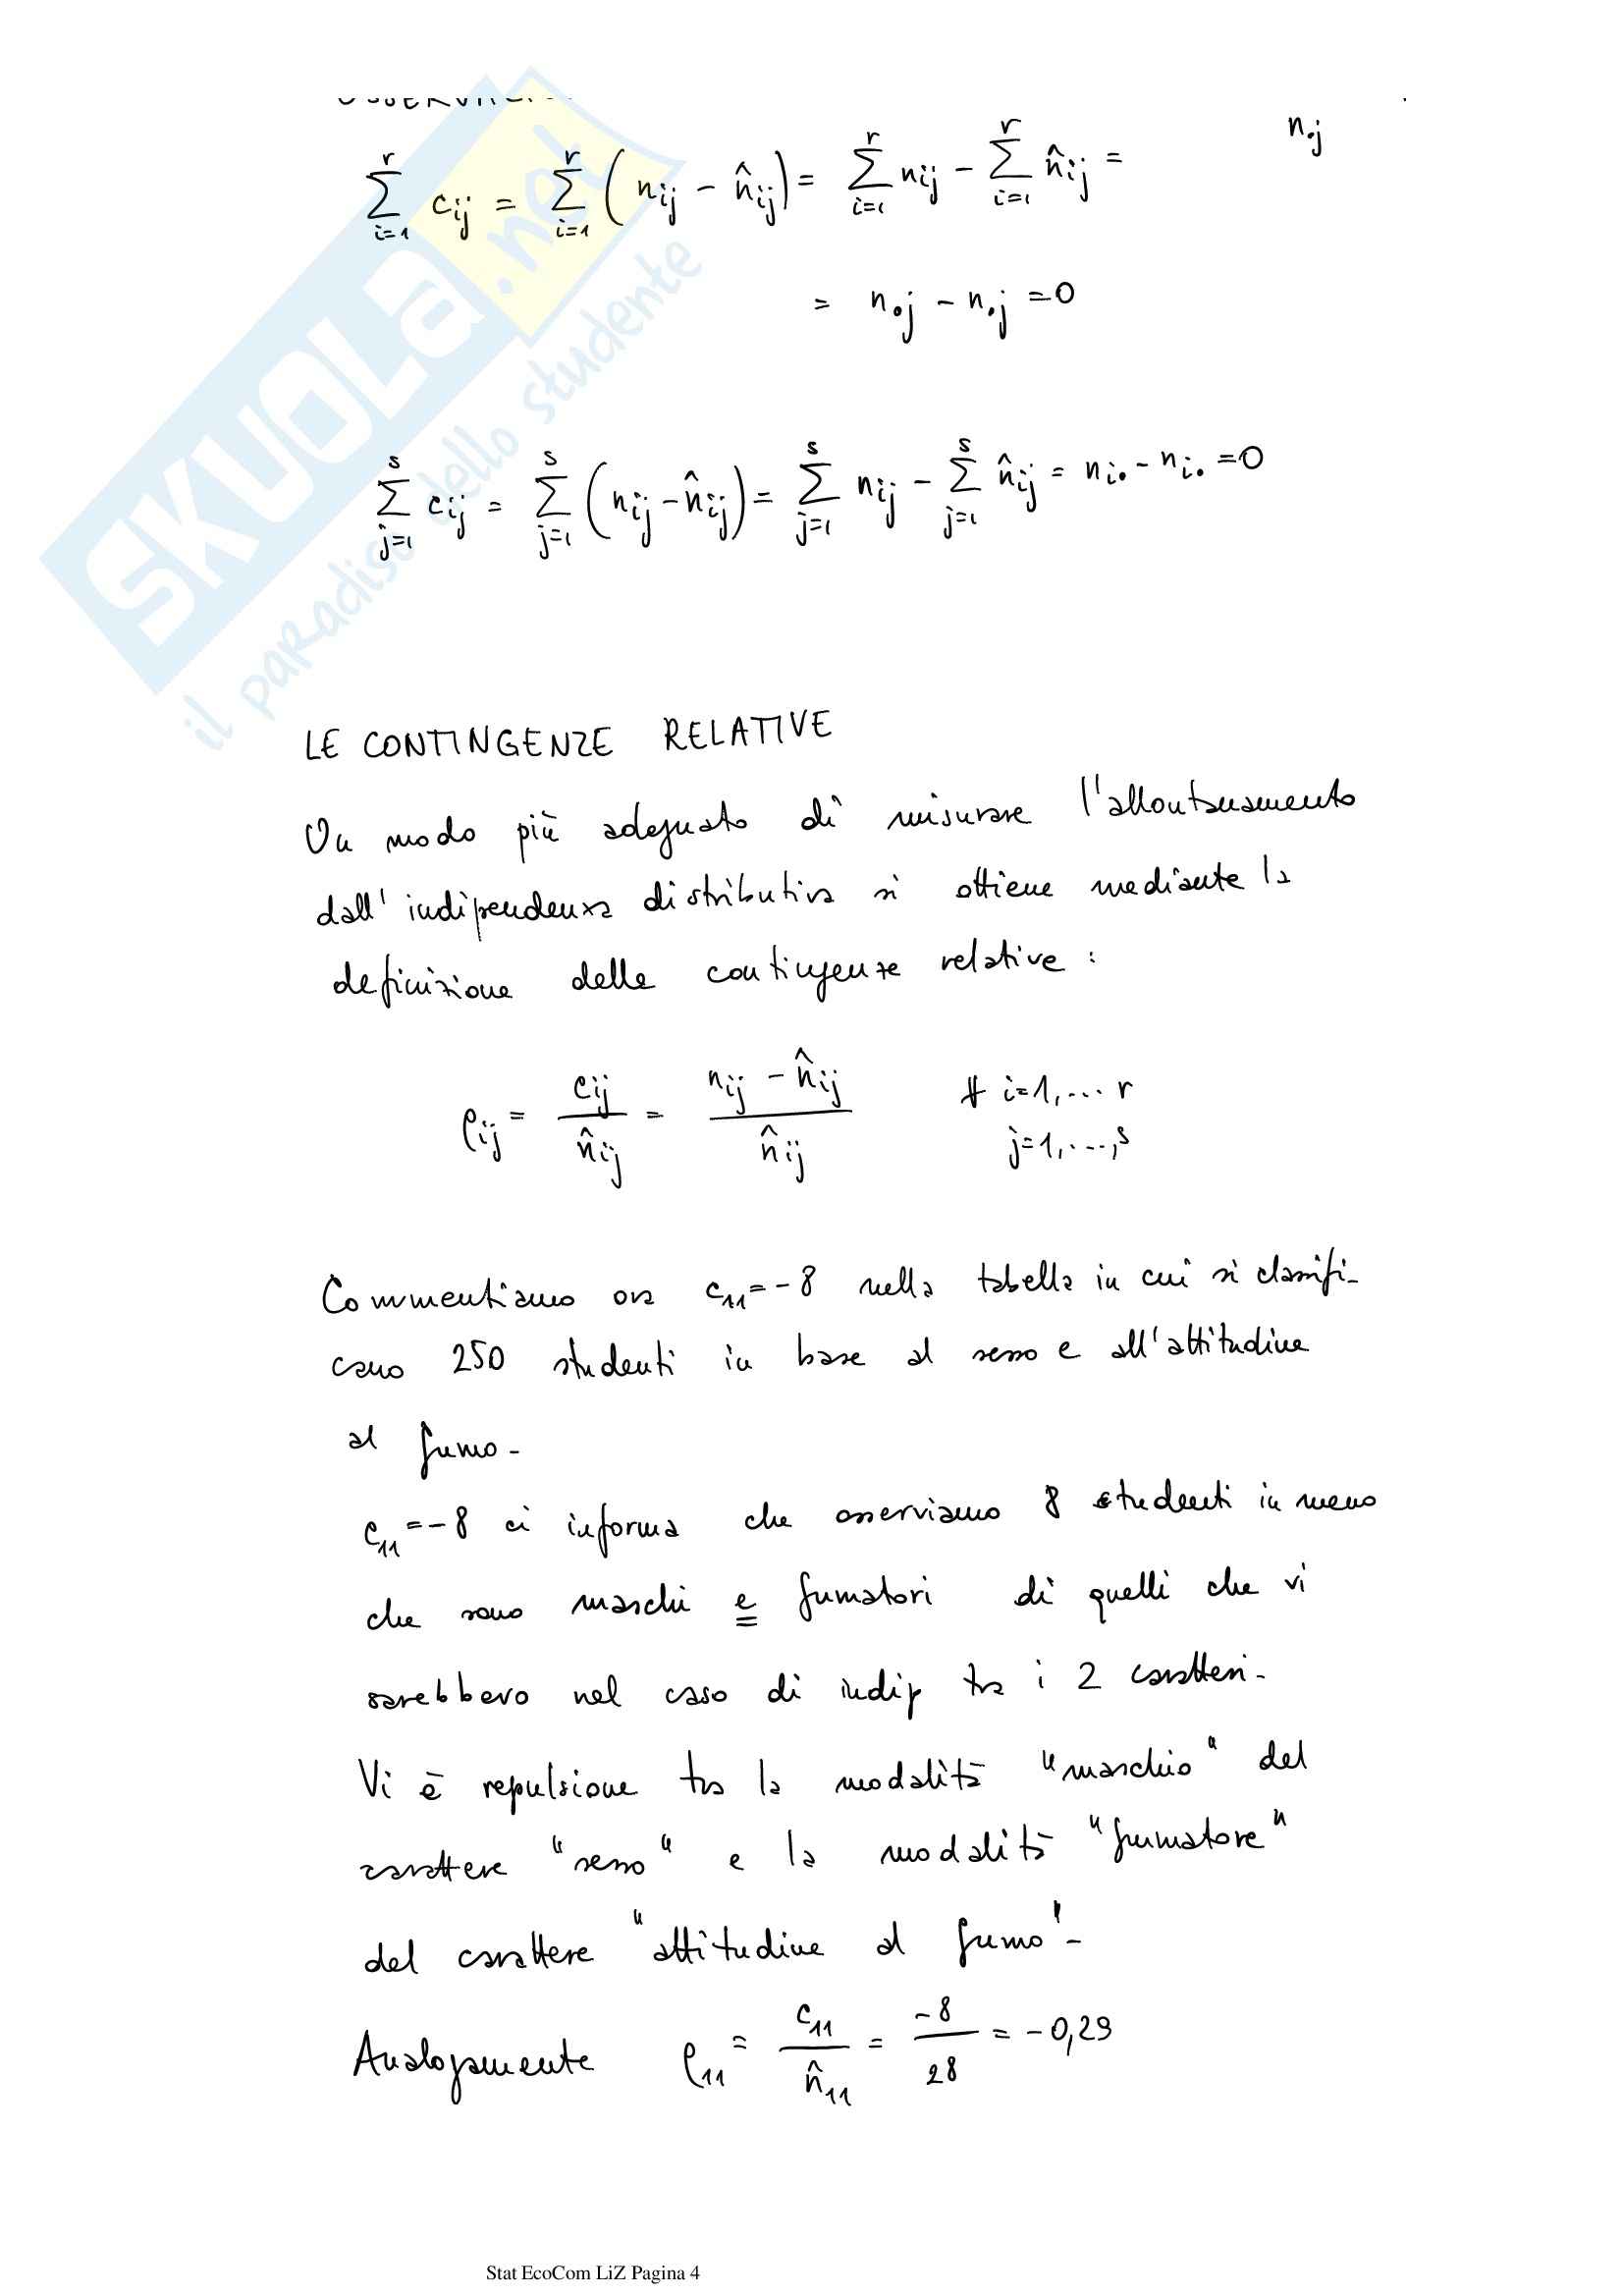 n.j
∑_{i=1}^{r} cij = ∑_{i=1}^{r} (nij - n̂ij) = ∑_{i=1}^{r} nij - ∑_{i=1}^{r} n̂ij =
= n.j - n.j = 0
∑_{j=1}^{s} cij = ∑_{j=1}^{s} (nij - n̂ij) = ∑_{j=1}^{s} nij - ∑_{j=1}^{s} n̂ij = ni. - ni. = 0
SKUOLA.net
il paradiso dello studente
LE CONTINGENZE RELATIVE
Un modo più adeguato di misurare l'allontanamento
dall'indipendenza distributiva si ottiene mediante la
definizione delle contingenze relative :
ρij = cij / n̂ij = (nij - n̂ij) / n̂ij ∀ i=1, ... r
j=1, ..., s
Commentiamo ora c11 = -8 nella tabella in cui si classifi-
cano 250 studenti in base al sesso e all'attitudine
al fumo -
c11 = -8 ci informa che osserviamo 8 studenti in meno
che sono maschi e fumatori di quelli che vi
sarebbero nel caso di indip tra i 2 caratteri -
Vi è repulsione tra la modalità "maschio" del
carattere "sesso" e la modalità "fumatore"
del carattere "attitudine al fumo" -
Analogamente ρ11 = c11 / n̂11 = -8 / 28 = -0,29
Stat EcoCom LiZ Pagina 4